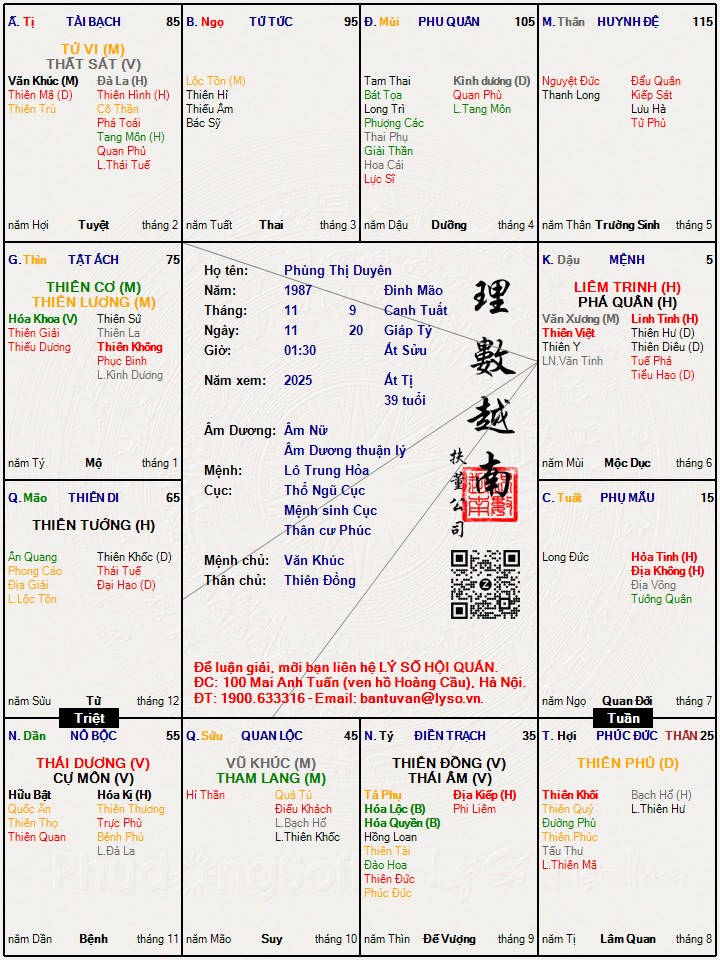 Ấ. Tị TÀI BẠCH 85
TỬ VI (M)
THẤT SÁT (V)
Văn Khúc (M) Đà La (H)
Thiên Mã (D) Thiên Hình (H)
Thiên Trù Cô Thần
Phá Toái
Tang Môn (H)
Quan Phủ
L.Thái Tuế
năm Hợi Tuyệt tháng 2
B. Ngọ TỬ TỨC 95
Lộc Tồn (M)
Thiên Hỉ
Thiếu Âm
Bác Sỹ
năm Tuất Thai tháng 3
Đ. Mùi PHU QUÂN 105
Tam Thai Kình dương (D)
Bát Tọa Quan Phù
Long Trì L.Tang Môn
Phượng Các
Thai Phụ
Giải Thần
Hoa Cái
Lực Sĩ
năm Dậu Dưỡng tháng 4
M. Thân HUYNH ĐỆ 115
Nguyệt Đức Đẩu Quân
Thanh Long Kiếp Sát
Lưu Hà
Tử Phù
năm Thân Trường Sinh tháng 5
G. Thìn TẬT ÁCH 75
THIÊN CƠ (M)
THIÊN LƯƠNG (M)
Hóa Khoa (V) Thiên Sứ
Thiên Giải Thiên La
Thiếu Dương Thiên Không
Phục Binh
L.Kình Dương
năm Tý Mộ tháng 1
Họ tên: Phùng Thị Duyên
Năm: 1987 Đinh Mão
Tháng: 11 9 Canh Tuất
Ngày: 11 20 Giáp Tý
Giờ: 01:30 Ất Sửu
Năm xem: 2025 Ất Tị
39 tuổi
Âm Dương: Âm Nữ
Âm Dương thuận lý
Mệnh: Lô Trung Hỏa
Cục: Thổ Ngũ Cục
Mệnh sinh Cục
Thân cư Phúc
Mệnh chủ: Văn Khúc
Thân chủ: Thiên Đồng
理數越南
扶董公司
Để luận giải, mời bạn liên hệ LÝ SỐ HỘI QUÁN.
ĐC: 100 Mai Anh Tuấn (ven hồ Hoàng Cầu), Hà Nội.
ĐT: 1900.633316 - Email: bantuvan@lyso.vn.
K. Dậu MỆNH 5
LIÊM TRINH (H)
PHÁ QUÂN (H)
Văn Xương (M) Linh Tinh (H)
Thiên Việt Thiên Hư (D)
Thiên Y Thiên Diêu (D)
LN.Văn Tinh Tuế Phá
Tiểu Hao (D)
năm Mùi Mộc Dục tháng 6
Q. Mão THIÊN DI 65
THIÊN TƯỚNG (H)
Ân Quang Thiên Khốc (D)
Phong Cáo Thái Tuế
Địa Giải Đại Hao (D)
L.Lộc Tồn
năm Sửu Tử tháng 12
C. Tuất PHỤ MẪU 15
Long Đức Hỏa Tinh (H)
Địa Không (H)
Địa Võng
Tướng Quân
năm Ngọ Quan Đới tháng 7
Triệt
Tuần
N. Dần NÔ BỘC 55
THÁI DƯƠNG (V)
CỰ MÔN (V)
Hữu Bật Hóa Kị (H)
Quốc Ấn Thiên Thương
Thiên Thọ Trực Phù
Thiên Quan Bệnh Phù
L.Đà La
năm Dần Bệnh tháng 11
Q. Sửu QUAN LỘC 45
VŨ KHÚC (M)
THAM LANG (M)
Hỉ Thần Quả Tú
Điếu Khách
L.Bạch Hổ
L.Thiên Khốc
năm Mão Suy tháng 10
N. Tý ĐIỀN TRẠCH 35
THIÊN ĐỒNG (V)
THÁI ÂM (V)
Tả Phụ Địa Kiếp (H)
Hóa Lộc (B) Phi Liêm
Hóa Quyền (B)
Hồng Loan
Thiên Tài
Đào Hoa
Thiên Đức
Phúc Đức
năm Thìn Đế Vượng tháng 9
T. Hợi PHÚC ĐỨC THÂN 25
THIÊN PHỦ (D)
Thiên Khôi Bạch Hổ (H)
Thiên Quý L.Thiên Hư
Đường Phù
Thiên Phúc
Tấu Thư
L.Thiên Mã
năm Tị Lâm Quan tháng 8